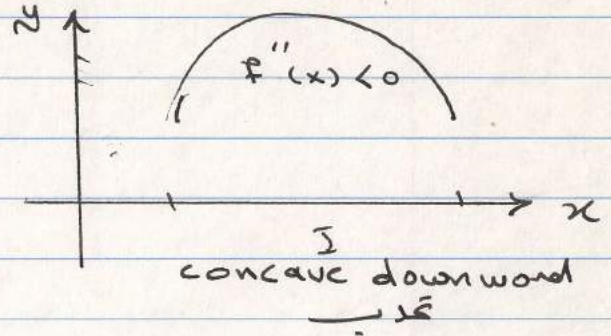 y
f''(x) < 0
x
I
concave downward